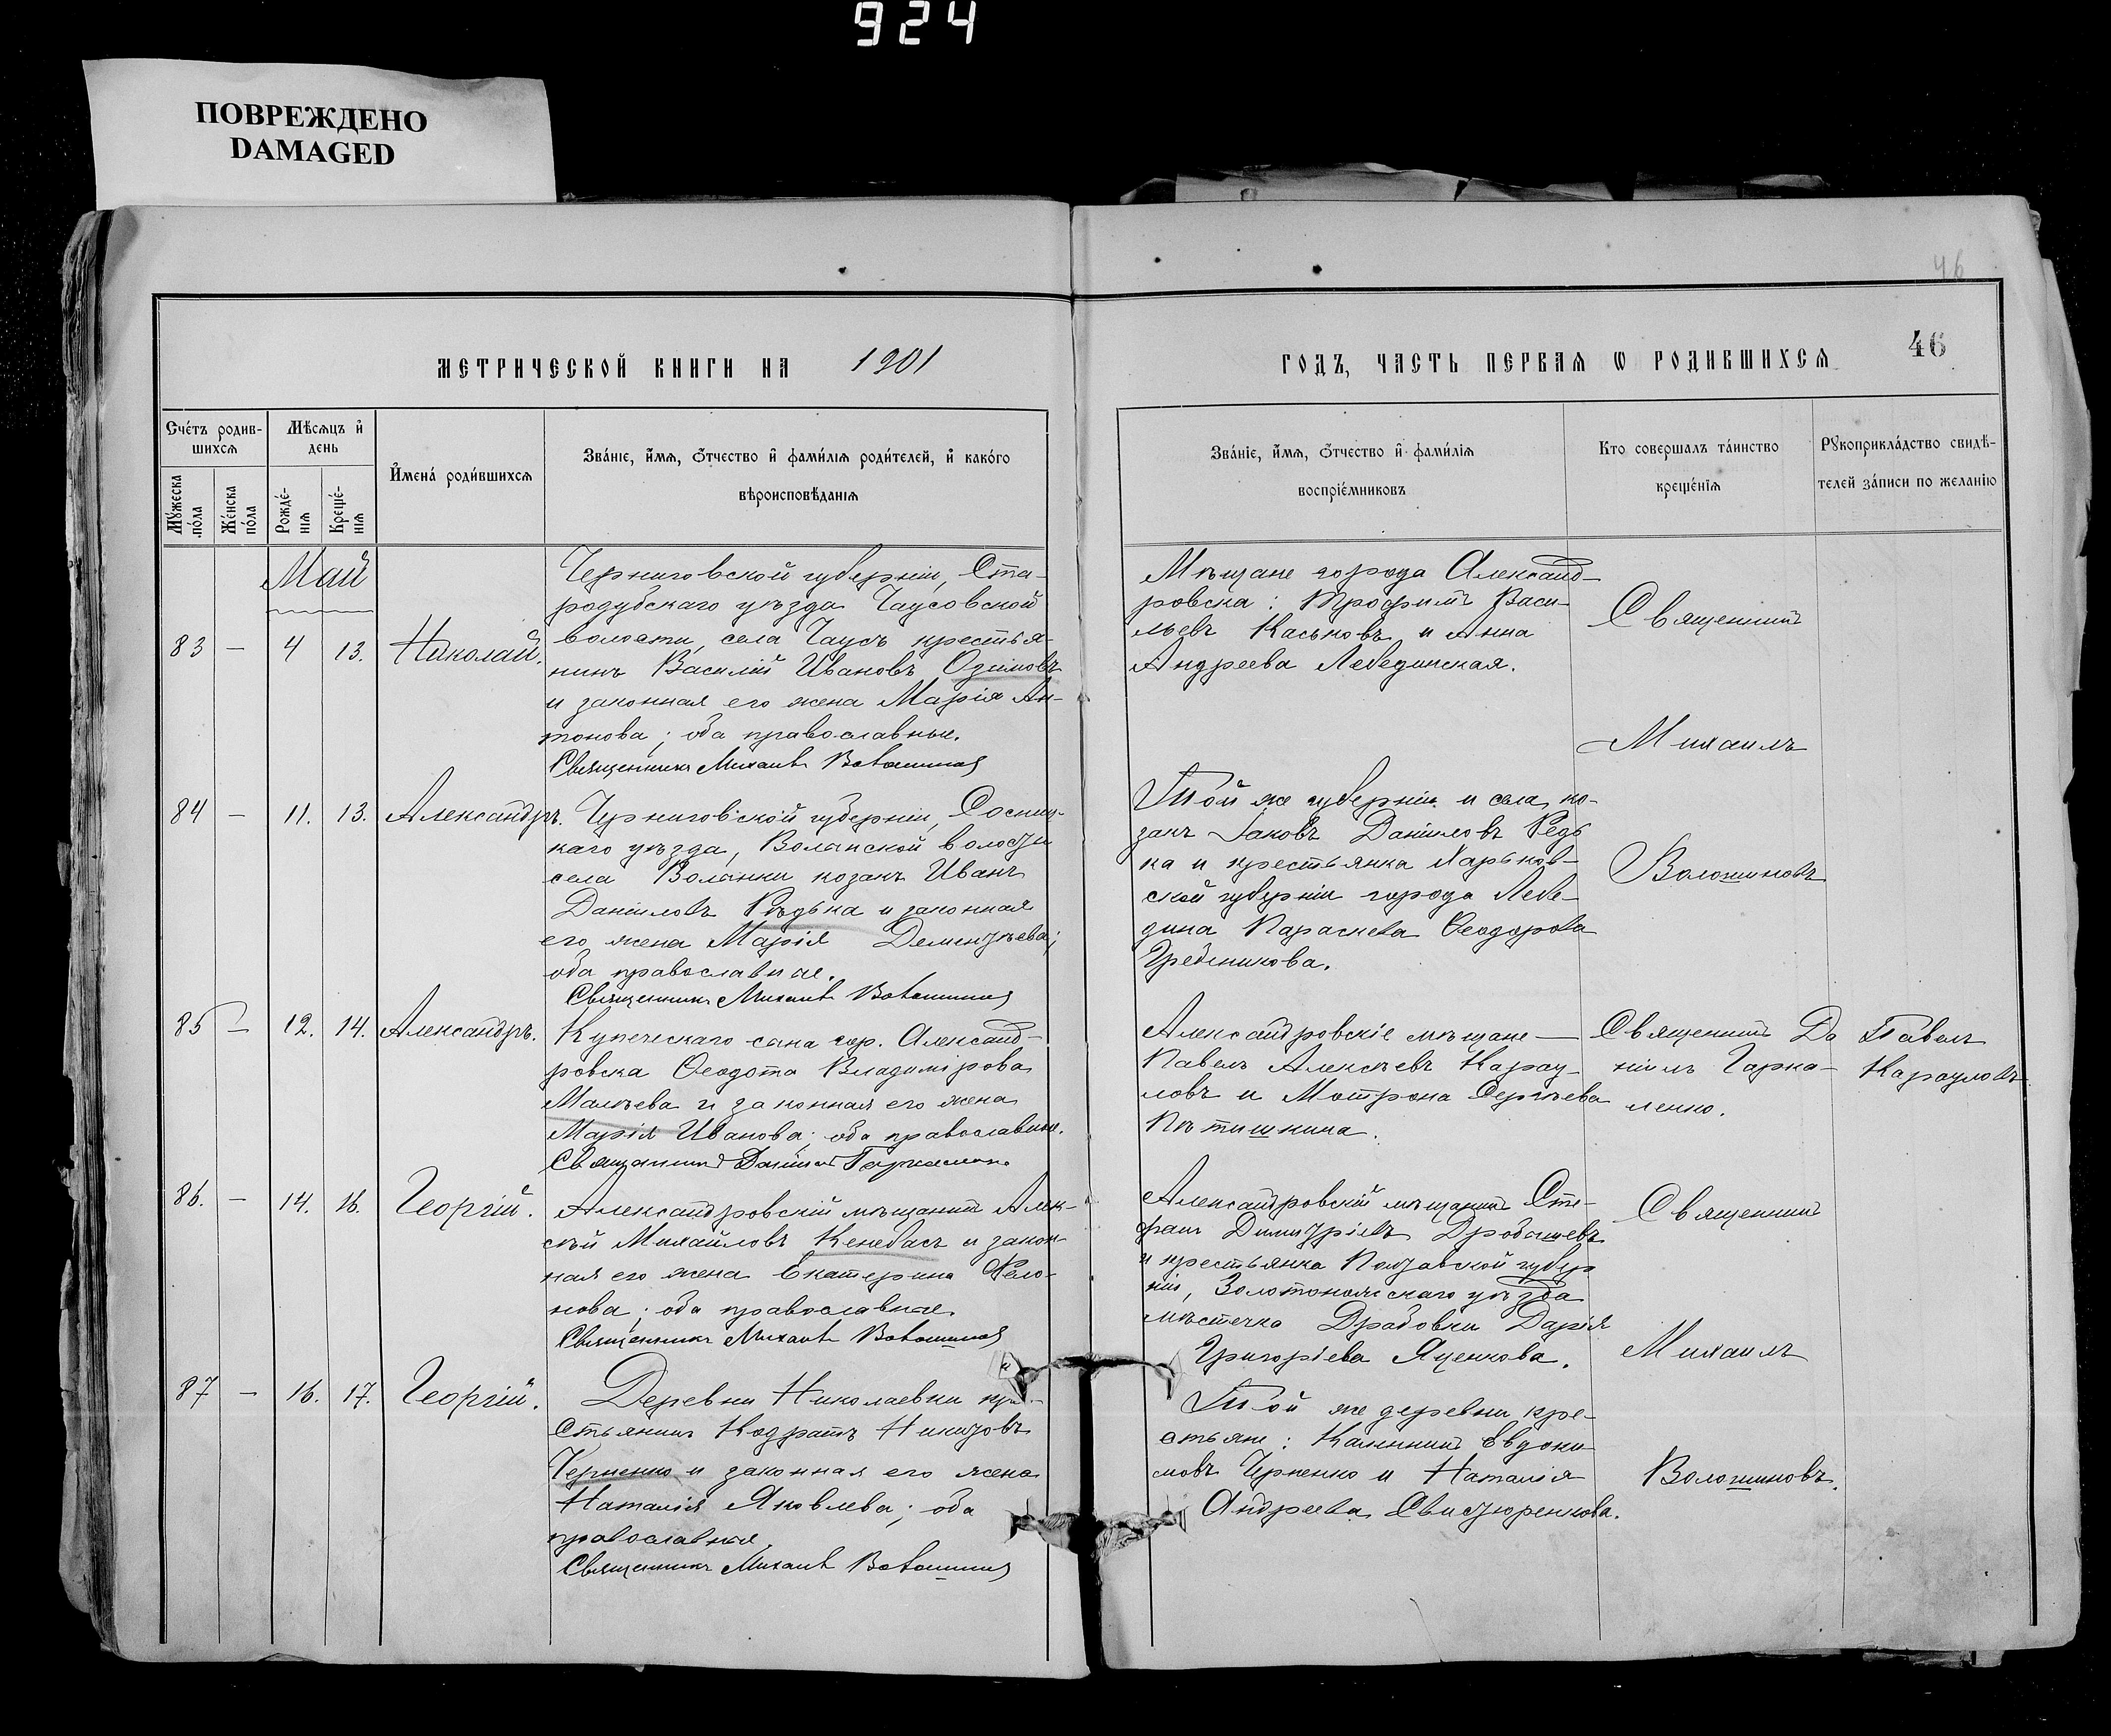 924
ПОВРЕЖДЕНО
DAMAGED
46
46
МЕТРИЧЕСКОЙ КНИГИ НА 1901
ГОДЪ, ЧАСТЬ ПЕРВАЯ Ѡ РОДИВШИХСЯ
Сче́тъ родив-
шихсѧ
Мѣсѧцъ и҆
день
Мꙋ́жеска
по́ла
Же́нска
по́ла
Рожде́-
нїѧ
Креще́-
нїѧ
И҆мена̀ роди́вшихсѧ
Зва́нїе, и҆́мѧ, ѻ҆́тчество и҆ фами́лїѧ роди́телей, и҆ како́гѡ
вѣроисповѣ́данїѧ
Зва́нїе, и҆́мѧ, ѻ҆́тчество и҆ фами́лїѧ
воспрїе́мниковъ
Кто соверша́лъ та́инство
креще́нїѧ
Рꙋкоприкла́дство свидѣ́-
телей за́писи по жела́нїю
Май
83 — 4 13. Николай.
Черниговской губерніи, Ста-
родубскаго уѣзда Чаусовской
волости, села Чаусъ крестья-
нинъ Василій Ивановъ Озимовъ
и законная его жена Марія Ан-
тонова; оба православные.
Священникъ Михаилъ Волошиновъ
Мѣщане города Александ-
ровска: Трофимъ Васи-
льевъ Каськовъ и Анна
Андреева Лебединская.
Священникъ
Михаилъ
Волошиновъ
84 — 11. 13. Александръ.
Черниговской губерніи, Сосниц-
каго уѣзда, Волынской волости
села Волынки козакъ Иванъ
Даніиловъ Рѣдька и законная
его жена Марія Дементьева;
оба православные.
Священникъ Михаилъ Волошиновъ
Той же губерніи и села, ко-
закъ Іаковъ Даніиловъ Редь
ка и крестьянка Харьков-
ской губерніи города Лебе-
дина Параскева Ѳеодорова
Гребеникова.
85 — 12. 14. Александръ.
Купеческаго сына гор. Александ-
ровска Ѳеодота Владимірова
Малѣева и законная его жена
Марія Иванова; оба православные.
Священникъ Даніилъ Гаркаленко
Александровскіе мѣщане —
Павелъ Алексѣевъ Карау-
ловъ и Мотрона Сергѣева
Пѣтишкина.
Священникъ Да
ніилъ Гарка-
ленко.
Павелъ
Карауловъ
86. — 14. 16. Георгій.
Александровскій мѣщанинъ Алек-
сѣй Михайловъ Кенебасъ и закон-
ная его жена Екатерина
нова; оба православные.
Священникъ Михаилъ Волошиновъ
Александровскій мѣщанинъ Сте-
фанъ Димитріевъ Дробышевъ
и крестьянка Полтавской губер
ніи, Золотоношскаго уѣзда
мѣстечка Драбовки Дарія
Григоріева Яценкова.
Священникъ
Михаилъ
Волошиновъ.
87 — 16. 17. Георгій.
Деревни Николаевки кре-
стьянинъ Кодратъ Никитовъ
Черненко и законная его жена
Наталія Яковлева; оба
православные
Священникъ Михаилъ Волошиновъ
Той же деревни кре-
стьяне: Калинникъ Евдоки
мовъ Черненко и Наталія
Андреева Свистюренкова.